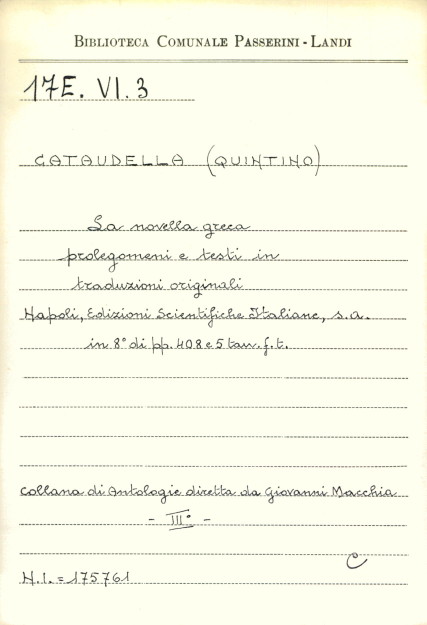 BIBLIOTECA COMUNALE PASSERINI - LANDI
17E. VI. 3
CATAUDELLA (QUINTINO)
La novella greca
prolegomeni e testi in
traduzioni originali
Napoli, Edizioni Scientifiche Italiane, s.a.
in 8° di pp. 408 e 5 tav. f. t.
Collana di Antologie diretta da Giovanni Macchia
- III° -
C
N.I. = 175761